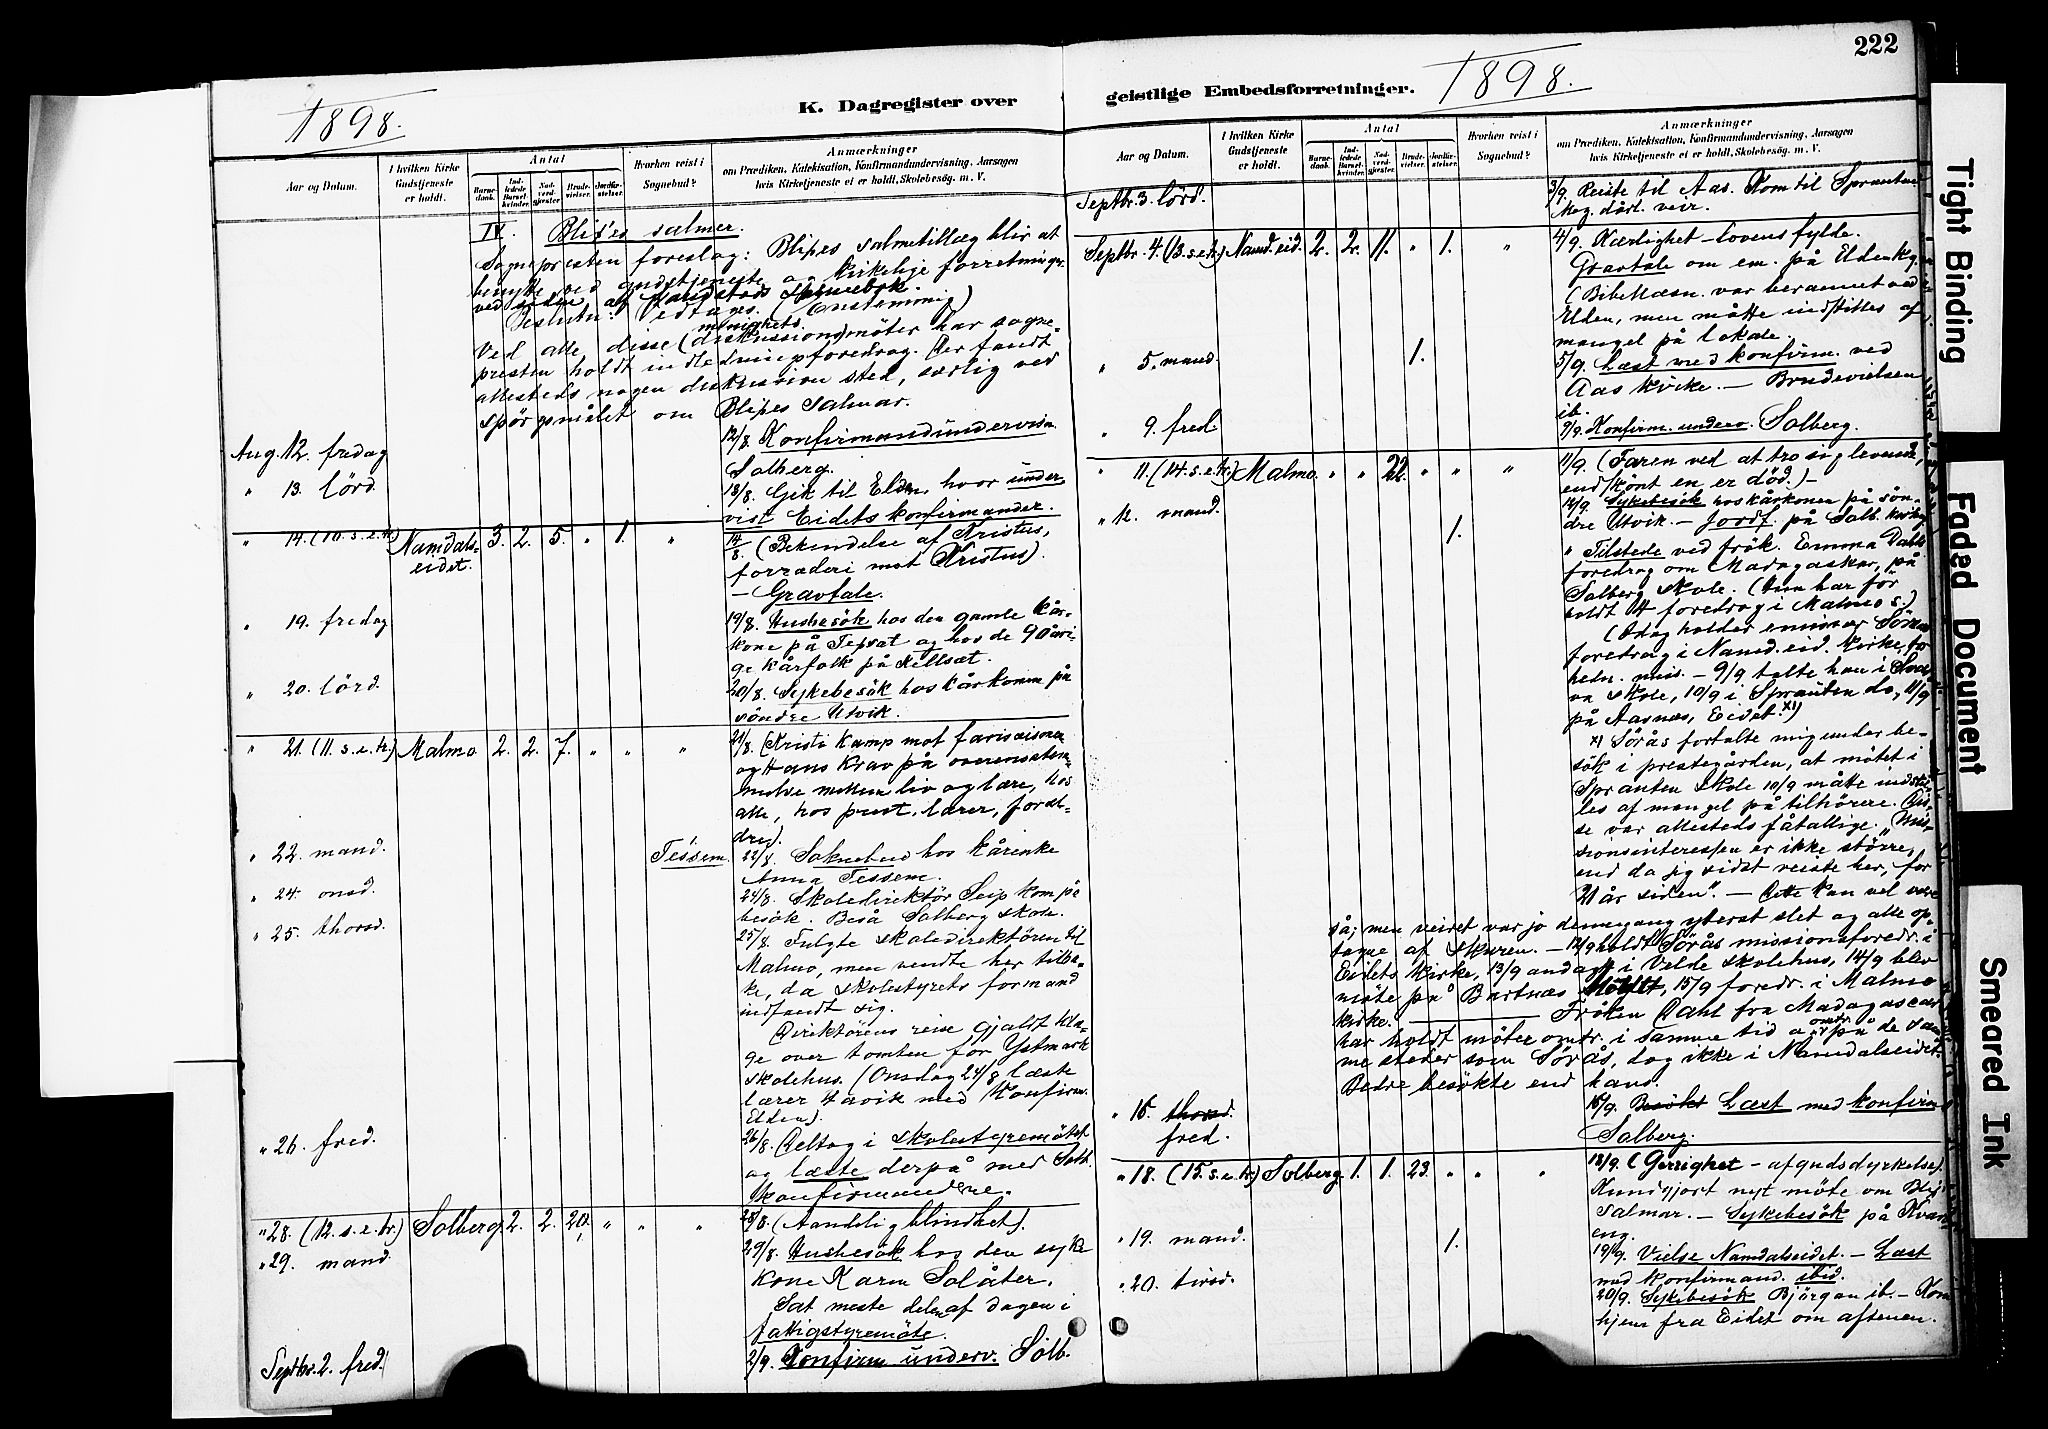 222
1898.
K. Dagregister over
geistlige Embedsforretninger.
1898.
Aar og Datum.
I hvilken Kirke Gudstjeneste er holdt.
Antal
Barnedaab.
Indledede Barselkvinder.
Nadverdgjester.
Brudevielser.
Jordfæstelser.
Hvorhen reist i Sognebud?
Anmærkninger
om Prædiken, Katekisation, Konfirmandundervisning, Aarsagen
hvis Kirketjeneste ei er holdt, Skolebesøg. m. V.
IV. Blix'es salmer.
Sognepresten foreslog: Blixes salmetillæg blir at
benytte ved gudstjeneste og kirkelige forretninger
ved siden af Landstads salmebok.
Beslutn: Vedtans. (Enstemmig)
Ved alle disse (diskussions) menighets møter har sogne-
presten holdt indledningsforedrag. Der fandt
allesteds nogen diskussion sted, særlig ved
spørgsmålet om Blixes Salmar.
Aug. 12. fredag
12/8. Konfirmandundervisn.
Solberg.
" 13. lörd.
13/8. Gik til Elden, hvor under-
vist Eidets konfirmander.
" 14. (10. s. e. tr.) Namdals-
eidet. 3. 2. 5. " 1. "
14/8. (Bekendelse af Kristus,
forræderi mot Kristus).
— Gravtale.
" 19. fredag
19/8. Husbesök hos den gamle kår-
kone på Tessæt og hos de 90 åri-
ge kårfolk på Kellsæt.
" 20. lörd.
20/8. Sykebesök hos kårkonen på
söndre Utvik.
" 21. (11. s. e. tr.) Malmo 2. 2. 7. " " "
21/8. (Kristi kamp mot farisæismen
og Hans krav på overensstem-
melse mellem liv og lære, hos
alle, hos prest, lærer, foræl-
dre).
" 22. mand.
Tessem.
22/8. Soknebud hos kårenke
Anna Tessem.
" 24. onsd.
24/8. Skoledirektör Seip kom på
besök. Beså Solberg skole.
" 25. thorsd.
25/8. Fulgte skoledirektören til
Malmo, men vendte her tilba-
ke, da skolestyrets formand
indfandt sig.
Direktörens reise gjaldt kla-
ge over tomten for Ystmark
skolehus. (Onsdag 24/8 læste
lærer Havik med konfirm.
Elden).
" 26. fred.
26/8. Deltog i skolestyremötet
og læste derpå med Solb.
konfirmanderne.
" 28. (12. s. e. tr.) Solberg 2. 2. 20. " " "
28/8. (Aandelig blindhet).
" 29. mand
29/8. Husbesök hos den syke
kone Karen Solåter.
Sat meste delen af dagen i
fattigstyremöte.
Septbr. 2. fred.
2/9. Konfirm underv. Solb.
Aar og Datum.
I hvilken Kirke Gudstjeneste er holdt.
Antal
Barnedaab.
Indledede Barselkvinder.
Nadverdgjester.
Brudevielser.
Jordfæstelser.
Hvorhen reist i Sognebud?
Anmærkninger
om Prædiken, Katekisation, Konfirmandundervisning, Aarsagen
hvis Kirketjeneste ei er holdt, Skolebesøg. m. V.
Septbr. 3. lörd.
3/9. Reiste til Aas. Kom til Sprauten
Meg. dårl. veir.
Septbr. 4. (13. s. e. tr.) Namd. eid. 2. 2. 11. " 1. "
4/9. Kærlighet — lovens fylde.
Gravtale om em. på Elden kg.
(Bibellæsn. var berammet ved
Elden, men måtte indstilles af
mangel på lokale.
" 5. mand. 1.
5/9. Læst med konfirm. ved
Aas kirke. — Brudevielsen
ib.
" 9. fred.
9/9. Konfirm. underv. Solberg.
" 11. (14. s. e. tr.) Malmo. " " 22. " " "
11/9. (Faren ved at tro sig levende,
endskönt en er död.) —
" 12. mand. 1.
12/9. Sykebesök hos kårkonen på sön-
dre Utvik. — Jordf. på Solb. kirkeg.
" Tilstede ved frök. Emma Dahls
foredrag om Madagaskar, på
Solberg skole. (Hun har för
holdt 4 foredrag i Malmo s.)
(Idag holder emissær Sörås
foredrag i Namd. eid. kirke, for
hedn. mis. — 9/9 talte han i
skole, 10/9 i Sprauten do, 11/9
på Aasnæs, Eidet. x))
x) Sörås fortalte mig under be-
sök i prestegården, at mötet i
Sprauten skole 10/9 måtte indstil-
les af mangel på tilhörere. Dis-
se var allesteds fåtallige. "Mis-
sionsinteressen er ikke större,
end da jeg sidst reiste her, for
21 år siden". — Dette kan vel være
så; men veiret var jo dennegang yterst slet og alle op-
tagne af skuren. — 12/9 holdt Sörås missionsforedr. i
Eidets kirke, 13/9 andagt i Velde skolehus, 14/9 blev
möte på Bartnæs holdt, 15/9 foredr. i Malmo
kirke. — Fröken Dahl fra Madagascar
har holdt möter omtr. i samme tid og omtr. på de sam-
me steder som Sörås, dog ikke i Namdalseidet.
Bedre besökte end hans.
" 16. thorsd.
fred.
16/9. Besökt Læst med konfirm
Solberg.
" 18. (15. s. e. tr.) Solberg. 1. 1. 23. " " "
18/9. (Gerrighet — afgudsdyrkelse).
Kundgjort nyt möte om Blix'
Salmar. — Sykebesök på Kvar-
eng.
" 19. mand. 1.
19/9. Vielse Namdalseidet. — Læst
med konfirmand. ibid.
" 20. tirsd.
20/9. Sykebesök Bjørgan ib. — Kom
hjem fra Eidet om aftenen.
Tight Binding
Faded Document
Smeared Ink